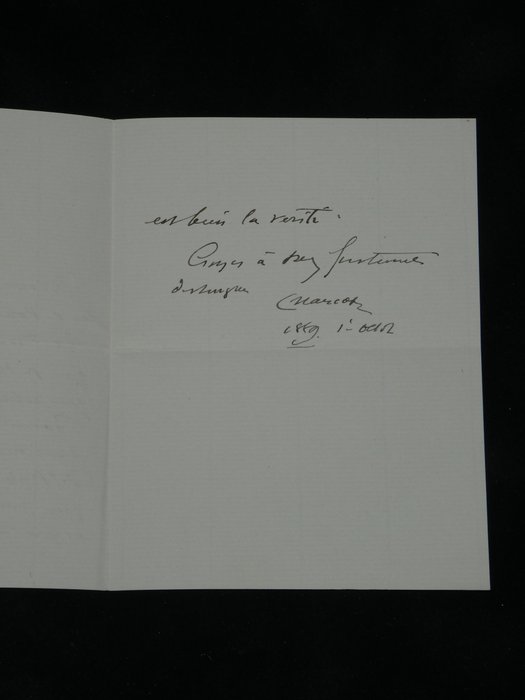 est bien la vérité.
Croyez à mes sentiments
distingués
Charcot
1889. 1er Octob